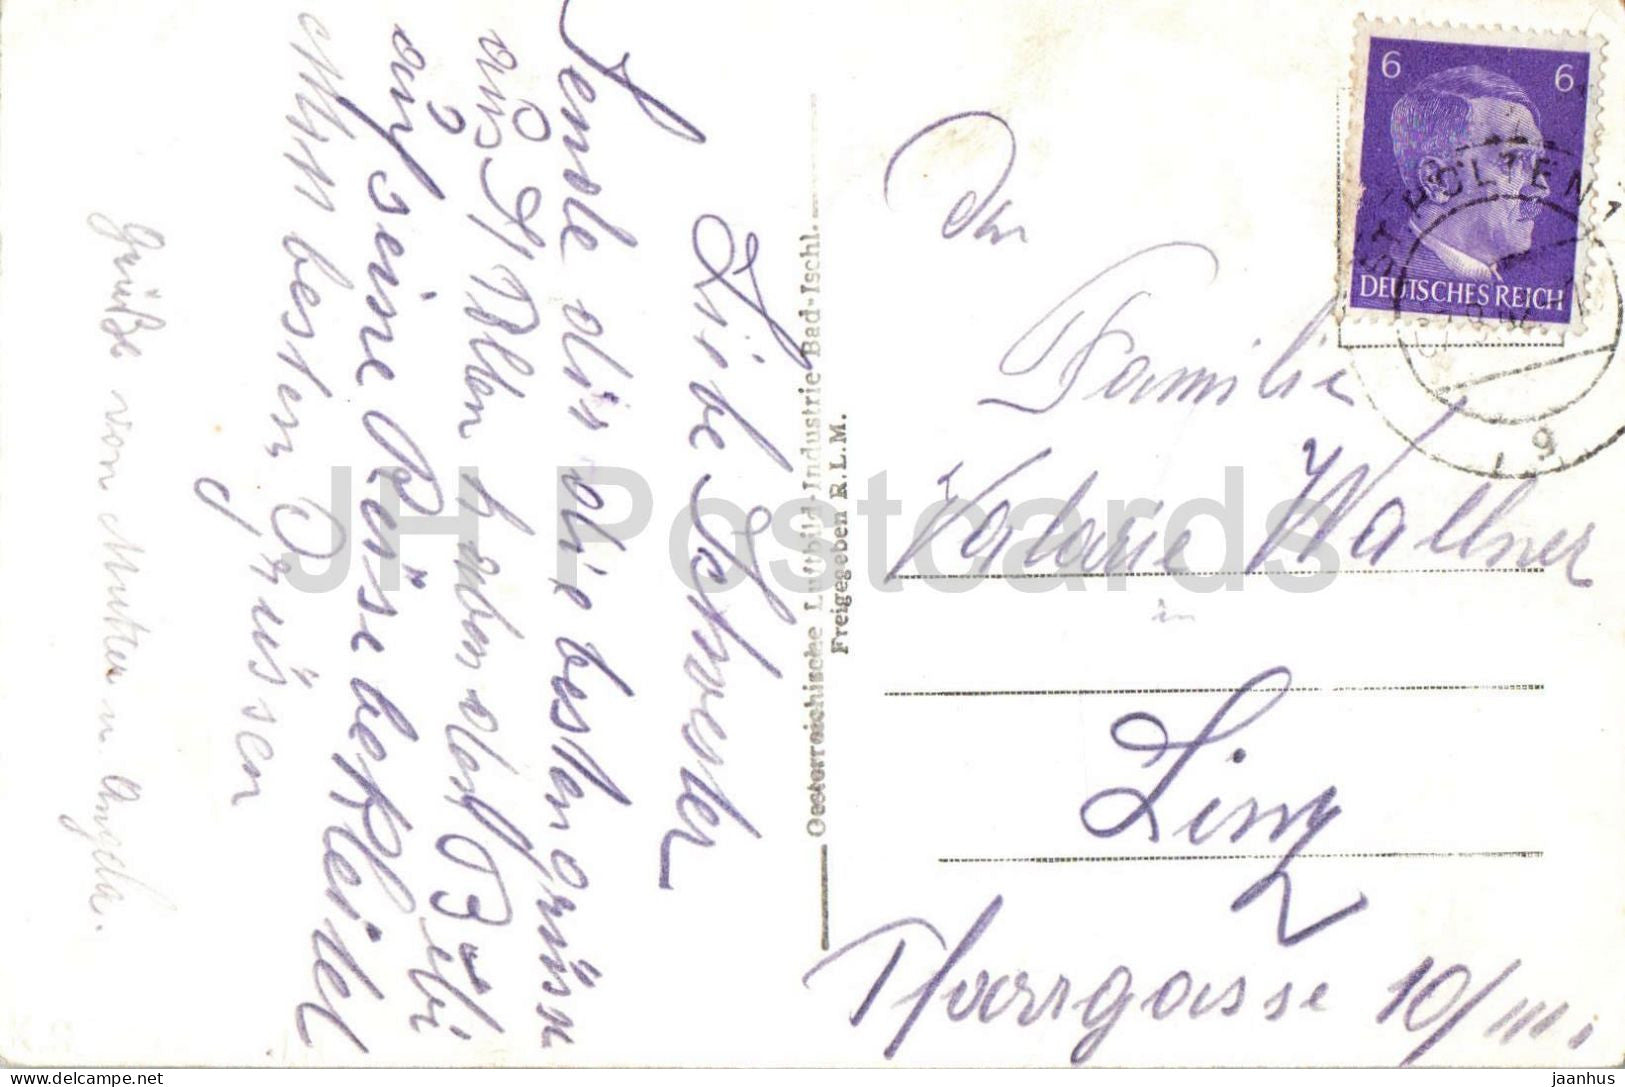 Liebe Schwester
Sende dir die besten grüsse
aus St. Pölten haben den Bubi
auf seine Reise bekleidet
Mit besten Grüssen
Grüße von Mutter u. Angela.
Oesterreichische Luftbild-Industrie Bad-Ischl.
Freigegeben R. L. M.
6 6
DEUTSCHES REICH
ST. PÖLTEN 1
g
An
Familie
Valerie Wallner
in
Linz
Pfarrgasse 10/III.
JH Postcards
delcampe.net
jaanhus